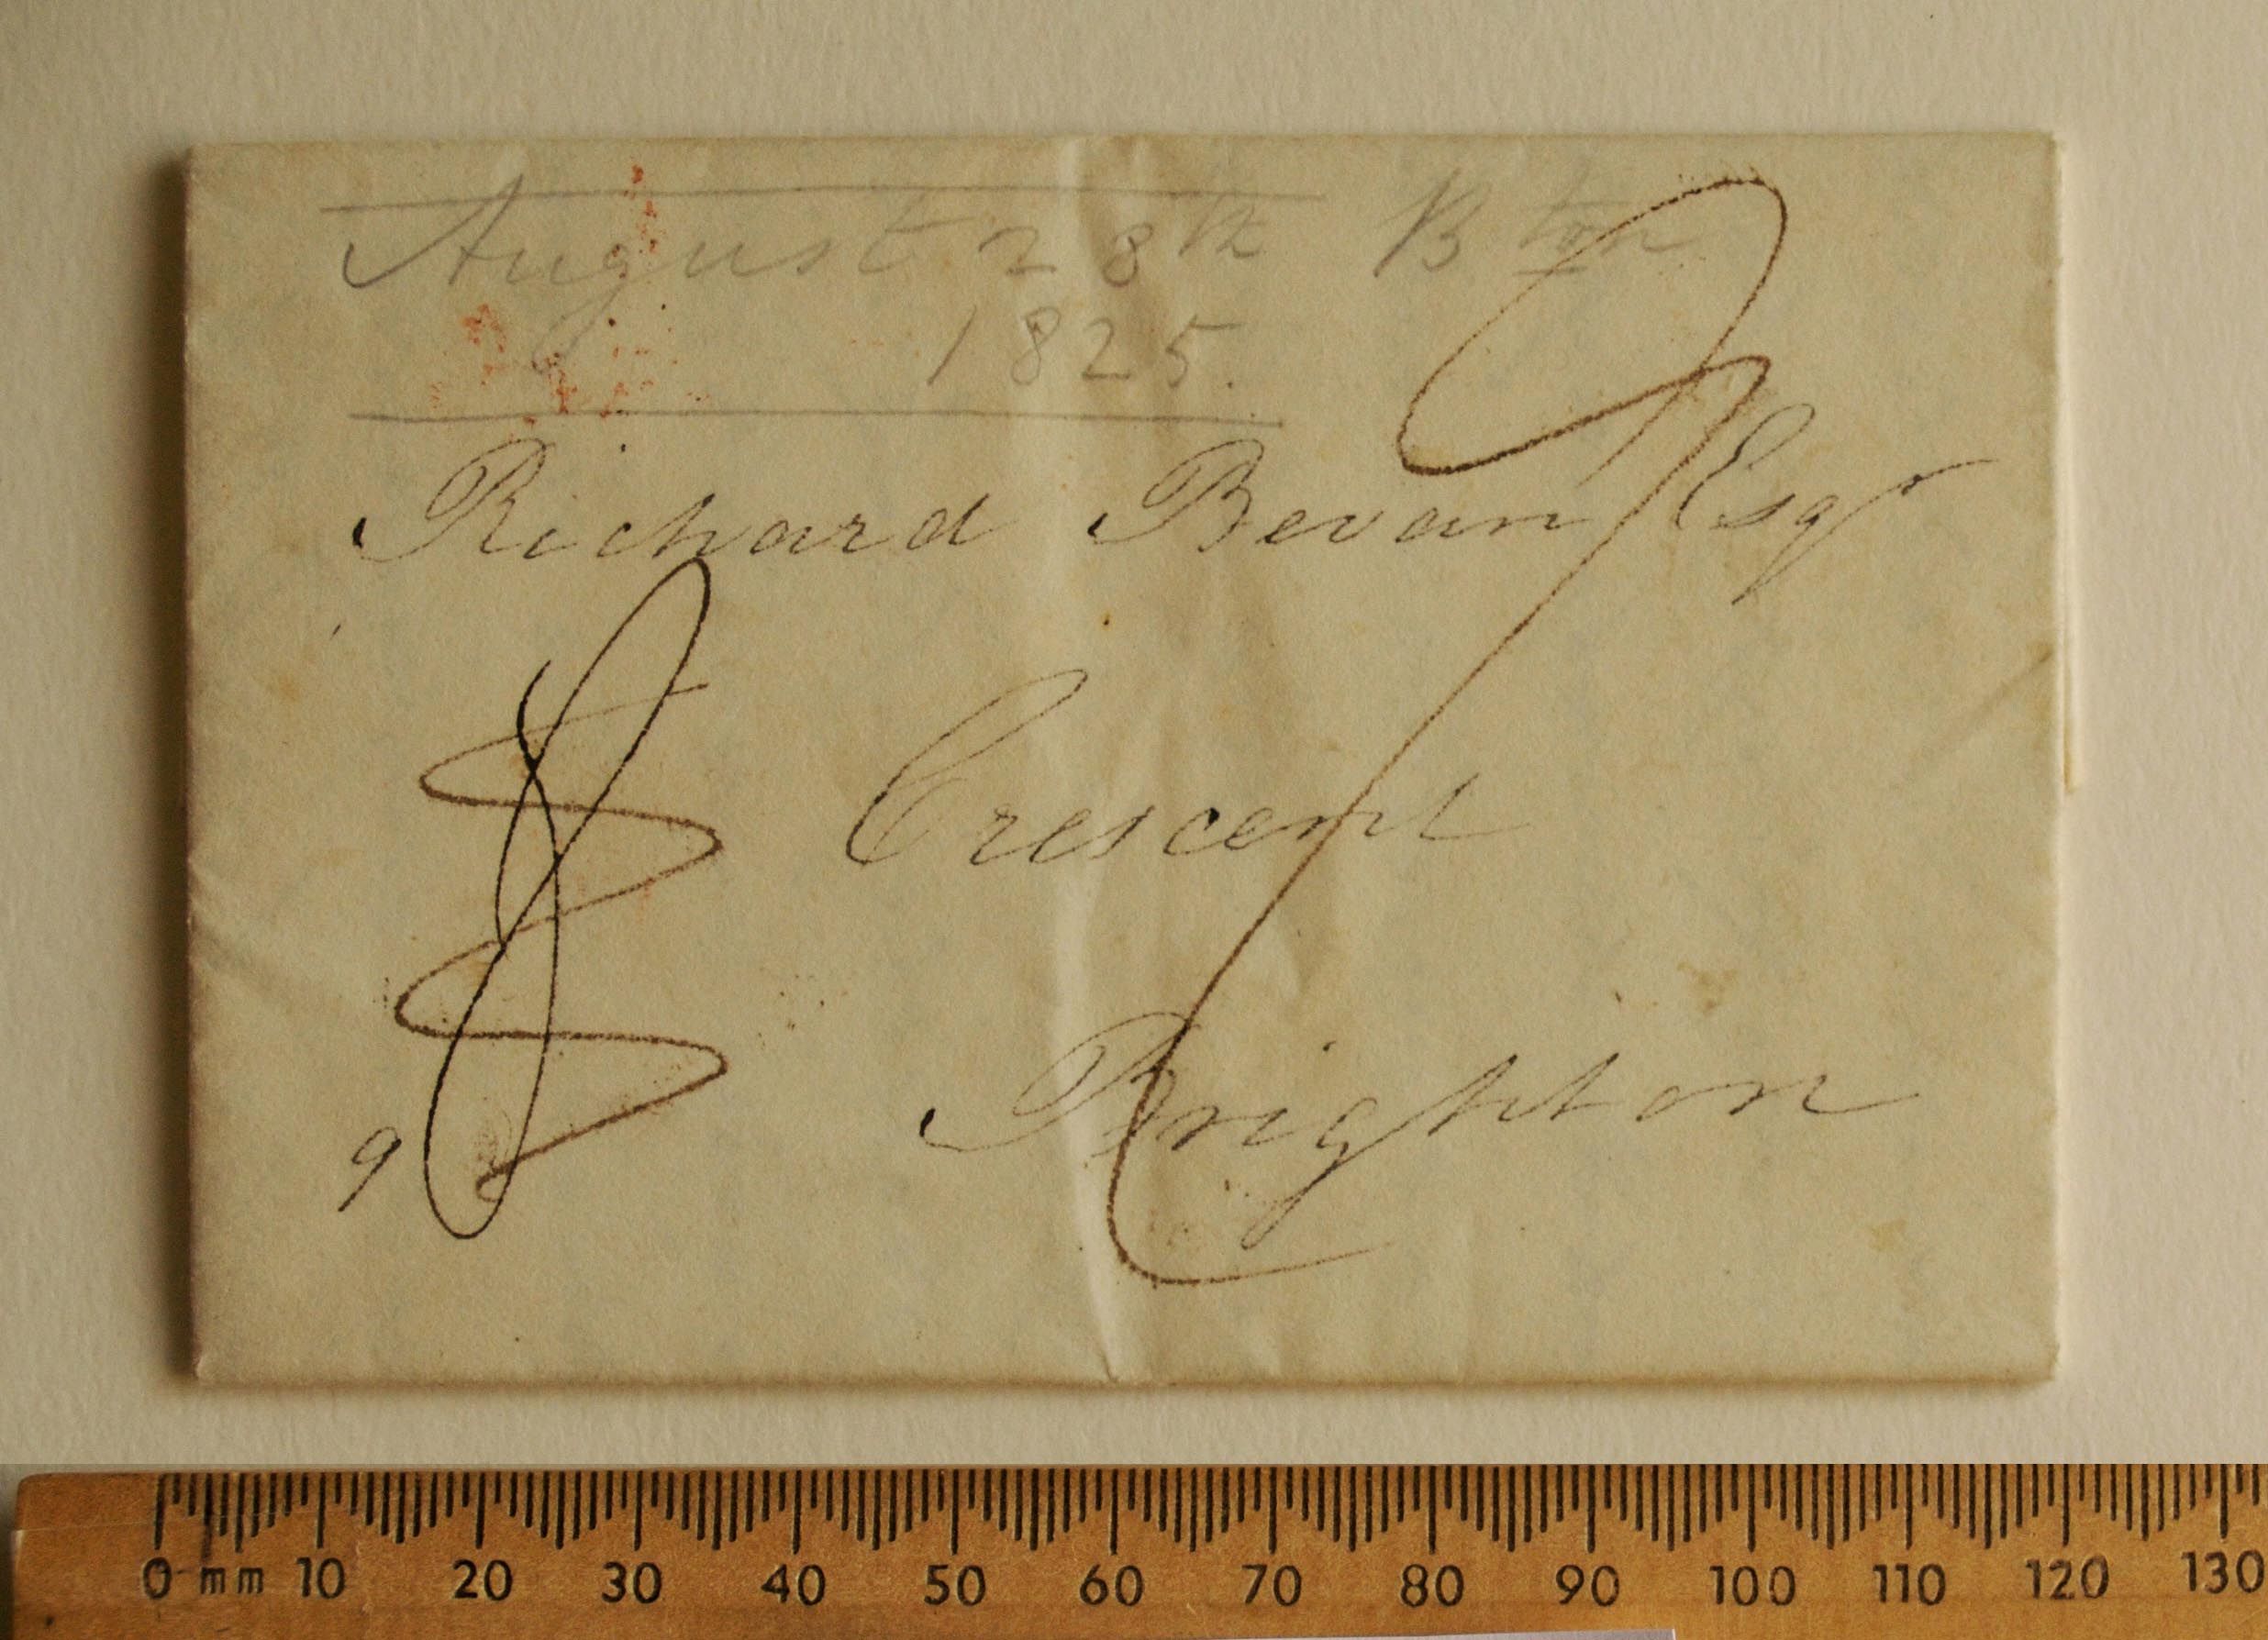 August 28th Bton
1825.
Richard Bevan Esqr
Crescent
Brighton
9
0 mm 10 20 30 40 50 60 70 80 90 100 110 120 130